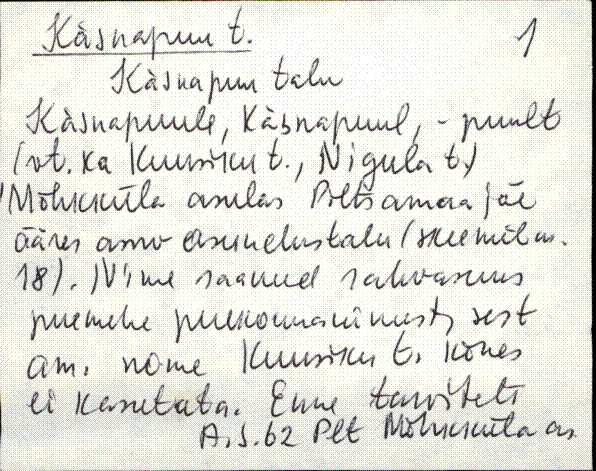 Käsnapuu t. 1
Käsnapuu talu
Käsnapuule, Käsnapuul, -puult
(vt. ka Kuusiku t., Nigula t.)
Mõhkküla asulas Põltsamaa jõe
ääres asuv asundustalu (skeemil as.
18). Nime saanud rahvasuus
puemehe sest
am. nime Kuusiku t. kõnes
ei kasutata. Enne tarvitati
A.S. 62 Plt Mõhkküla as.